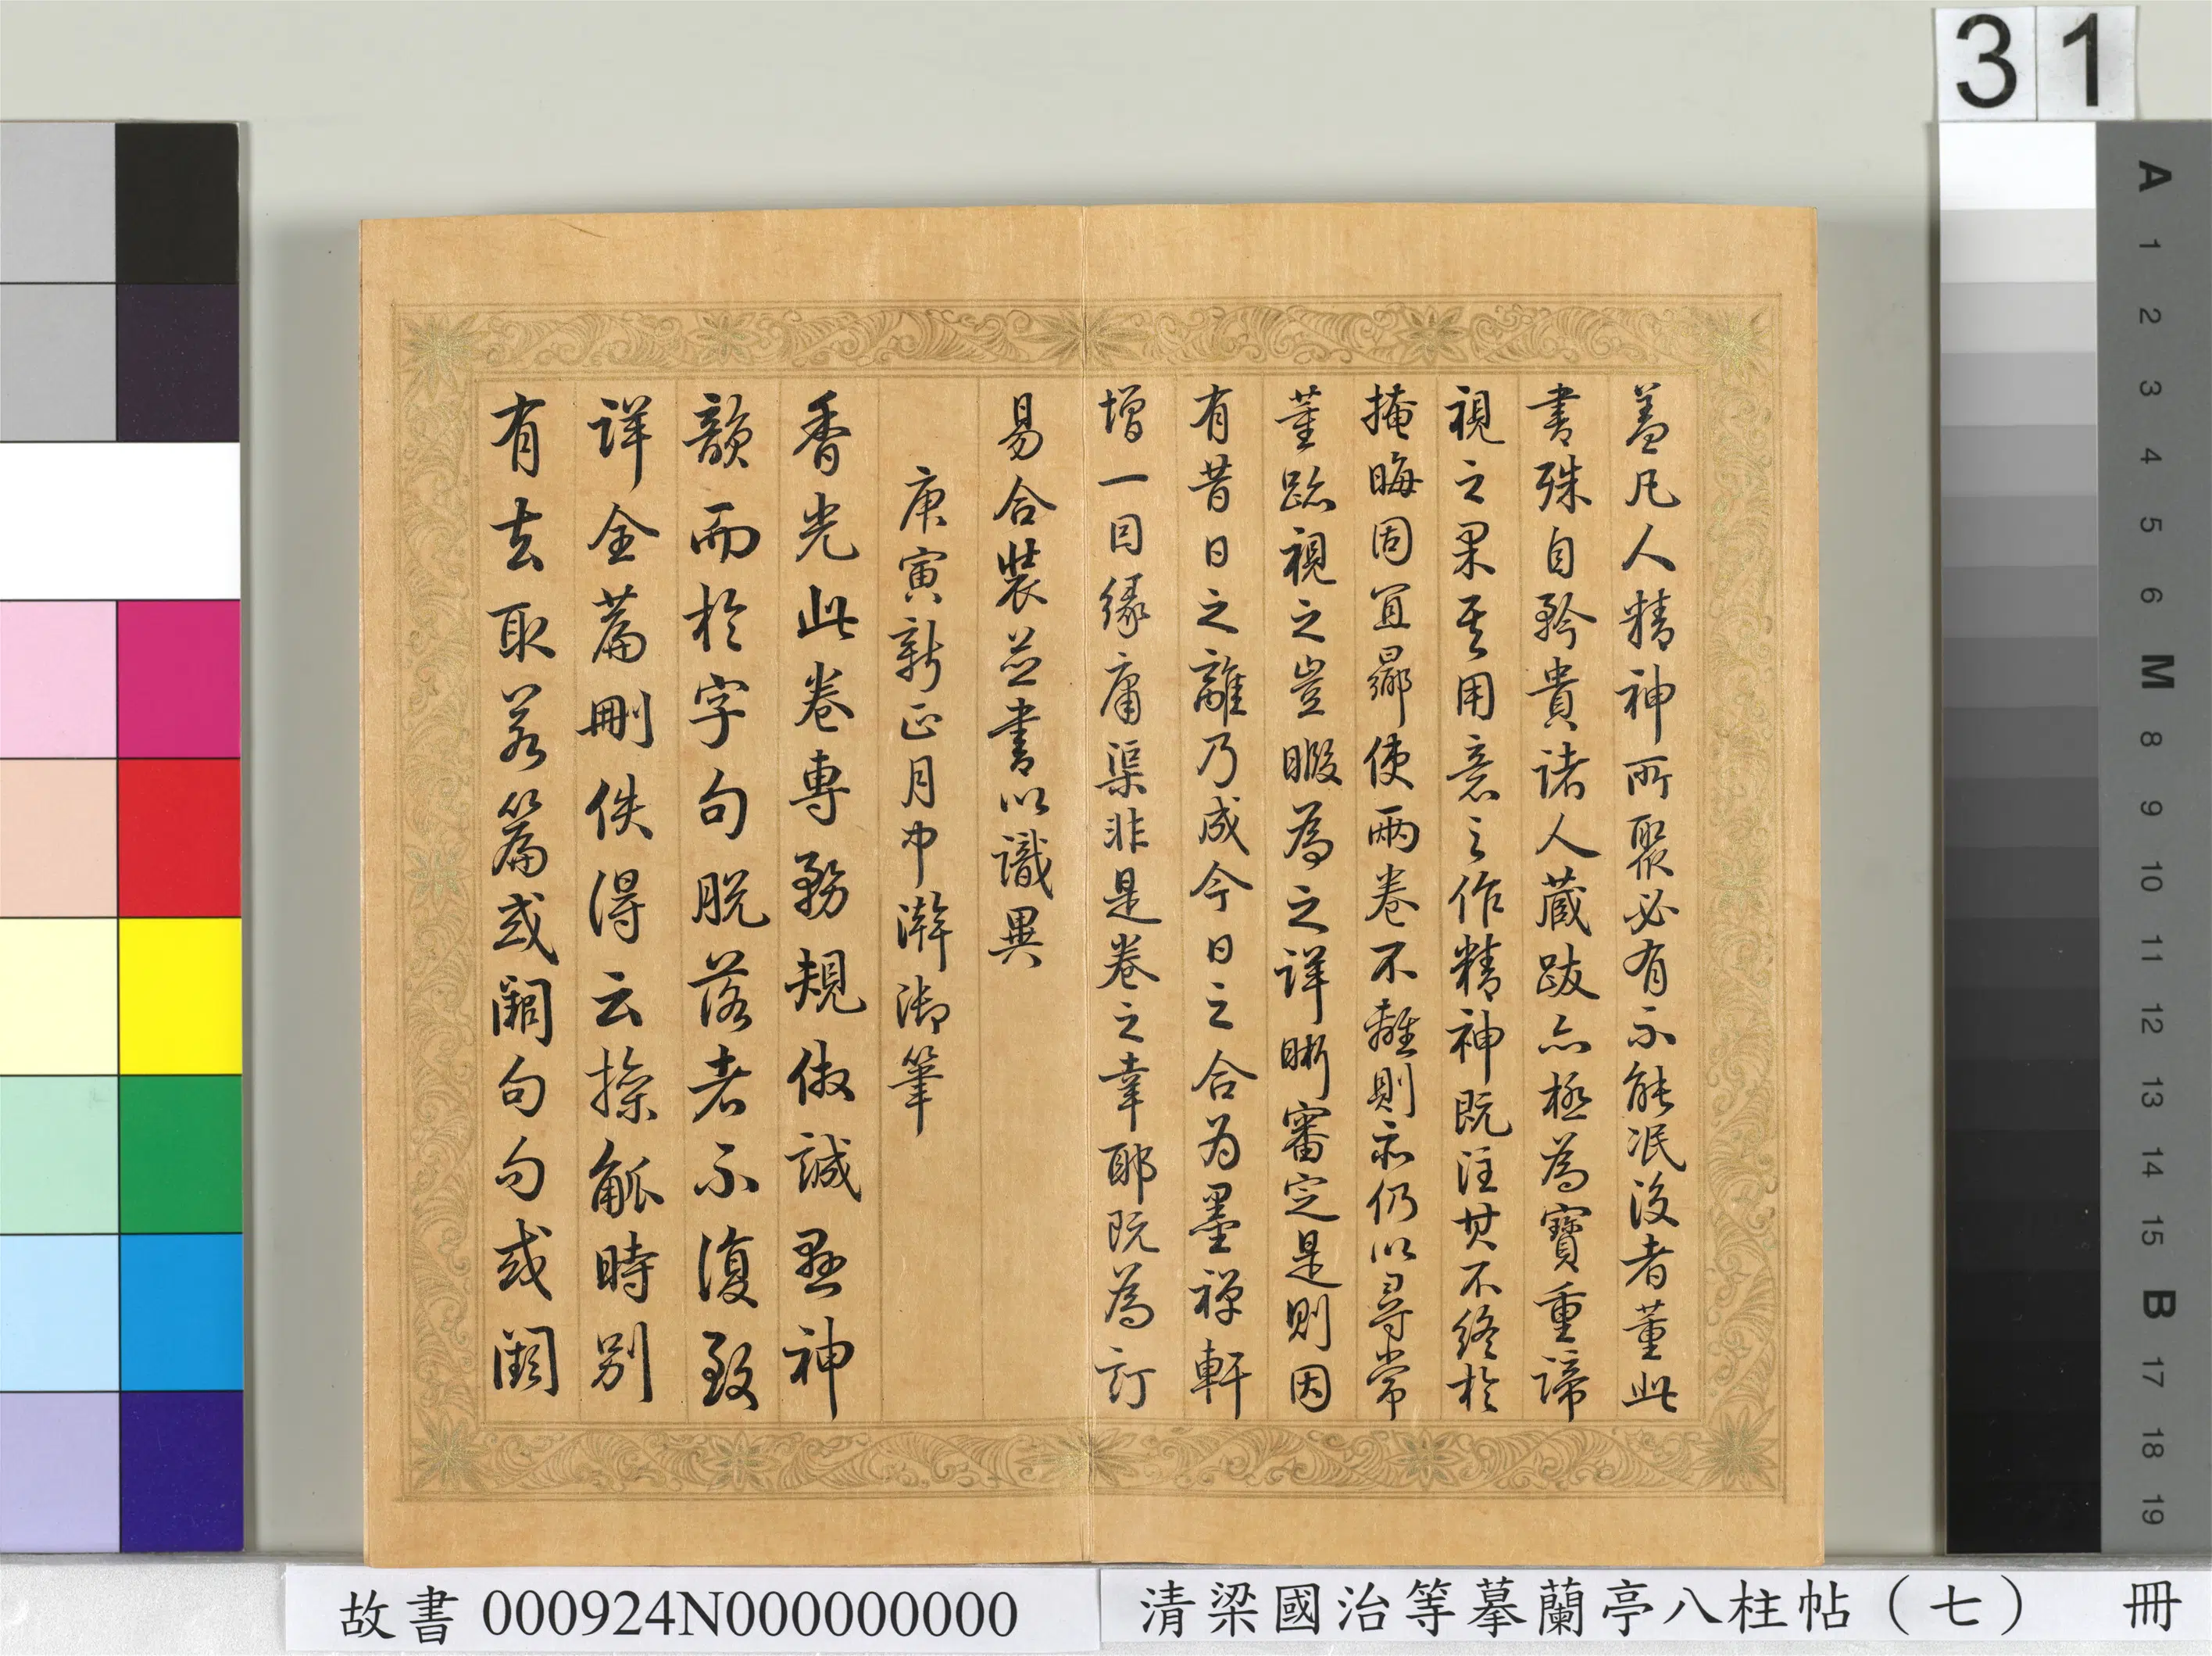 31
蓋凡人精神所聚必有不能泯没者董此
書殊自矜貴諸人藏跋亦極為寶重諦
視之果其用意之作精神既注其不終於
掩晦固宜曏使兩卷不離則亦仍以尋常
董跡視之豈暇為之詳晰審定是則因
有昔日之離乃成今日之合为墨禪軒
增一目緣庸渠非是卷之幸耶既為訂
易合裝並書以識異
庚寅新正月中澣御筆
香光此卷專務規倣誠無神
韻而於字句脱落者不復致
詳全篇刪佚得云操觚時别
有去取若篇或闕句句或闕
A
1
2
3
4
5
6
M
8
9
10
11
12
13
14
15
B
17
18
19
故書 000924N000000000
清梁國治等摹蘭亭八柱帖（七） 冊